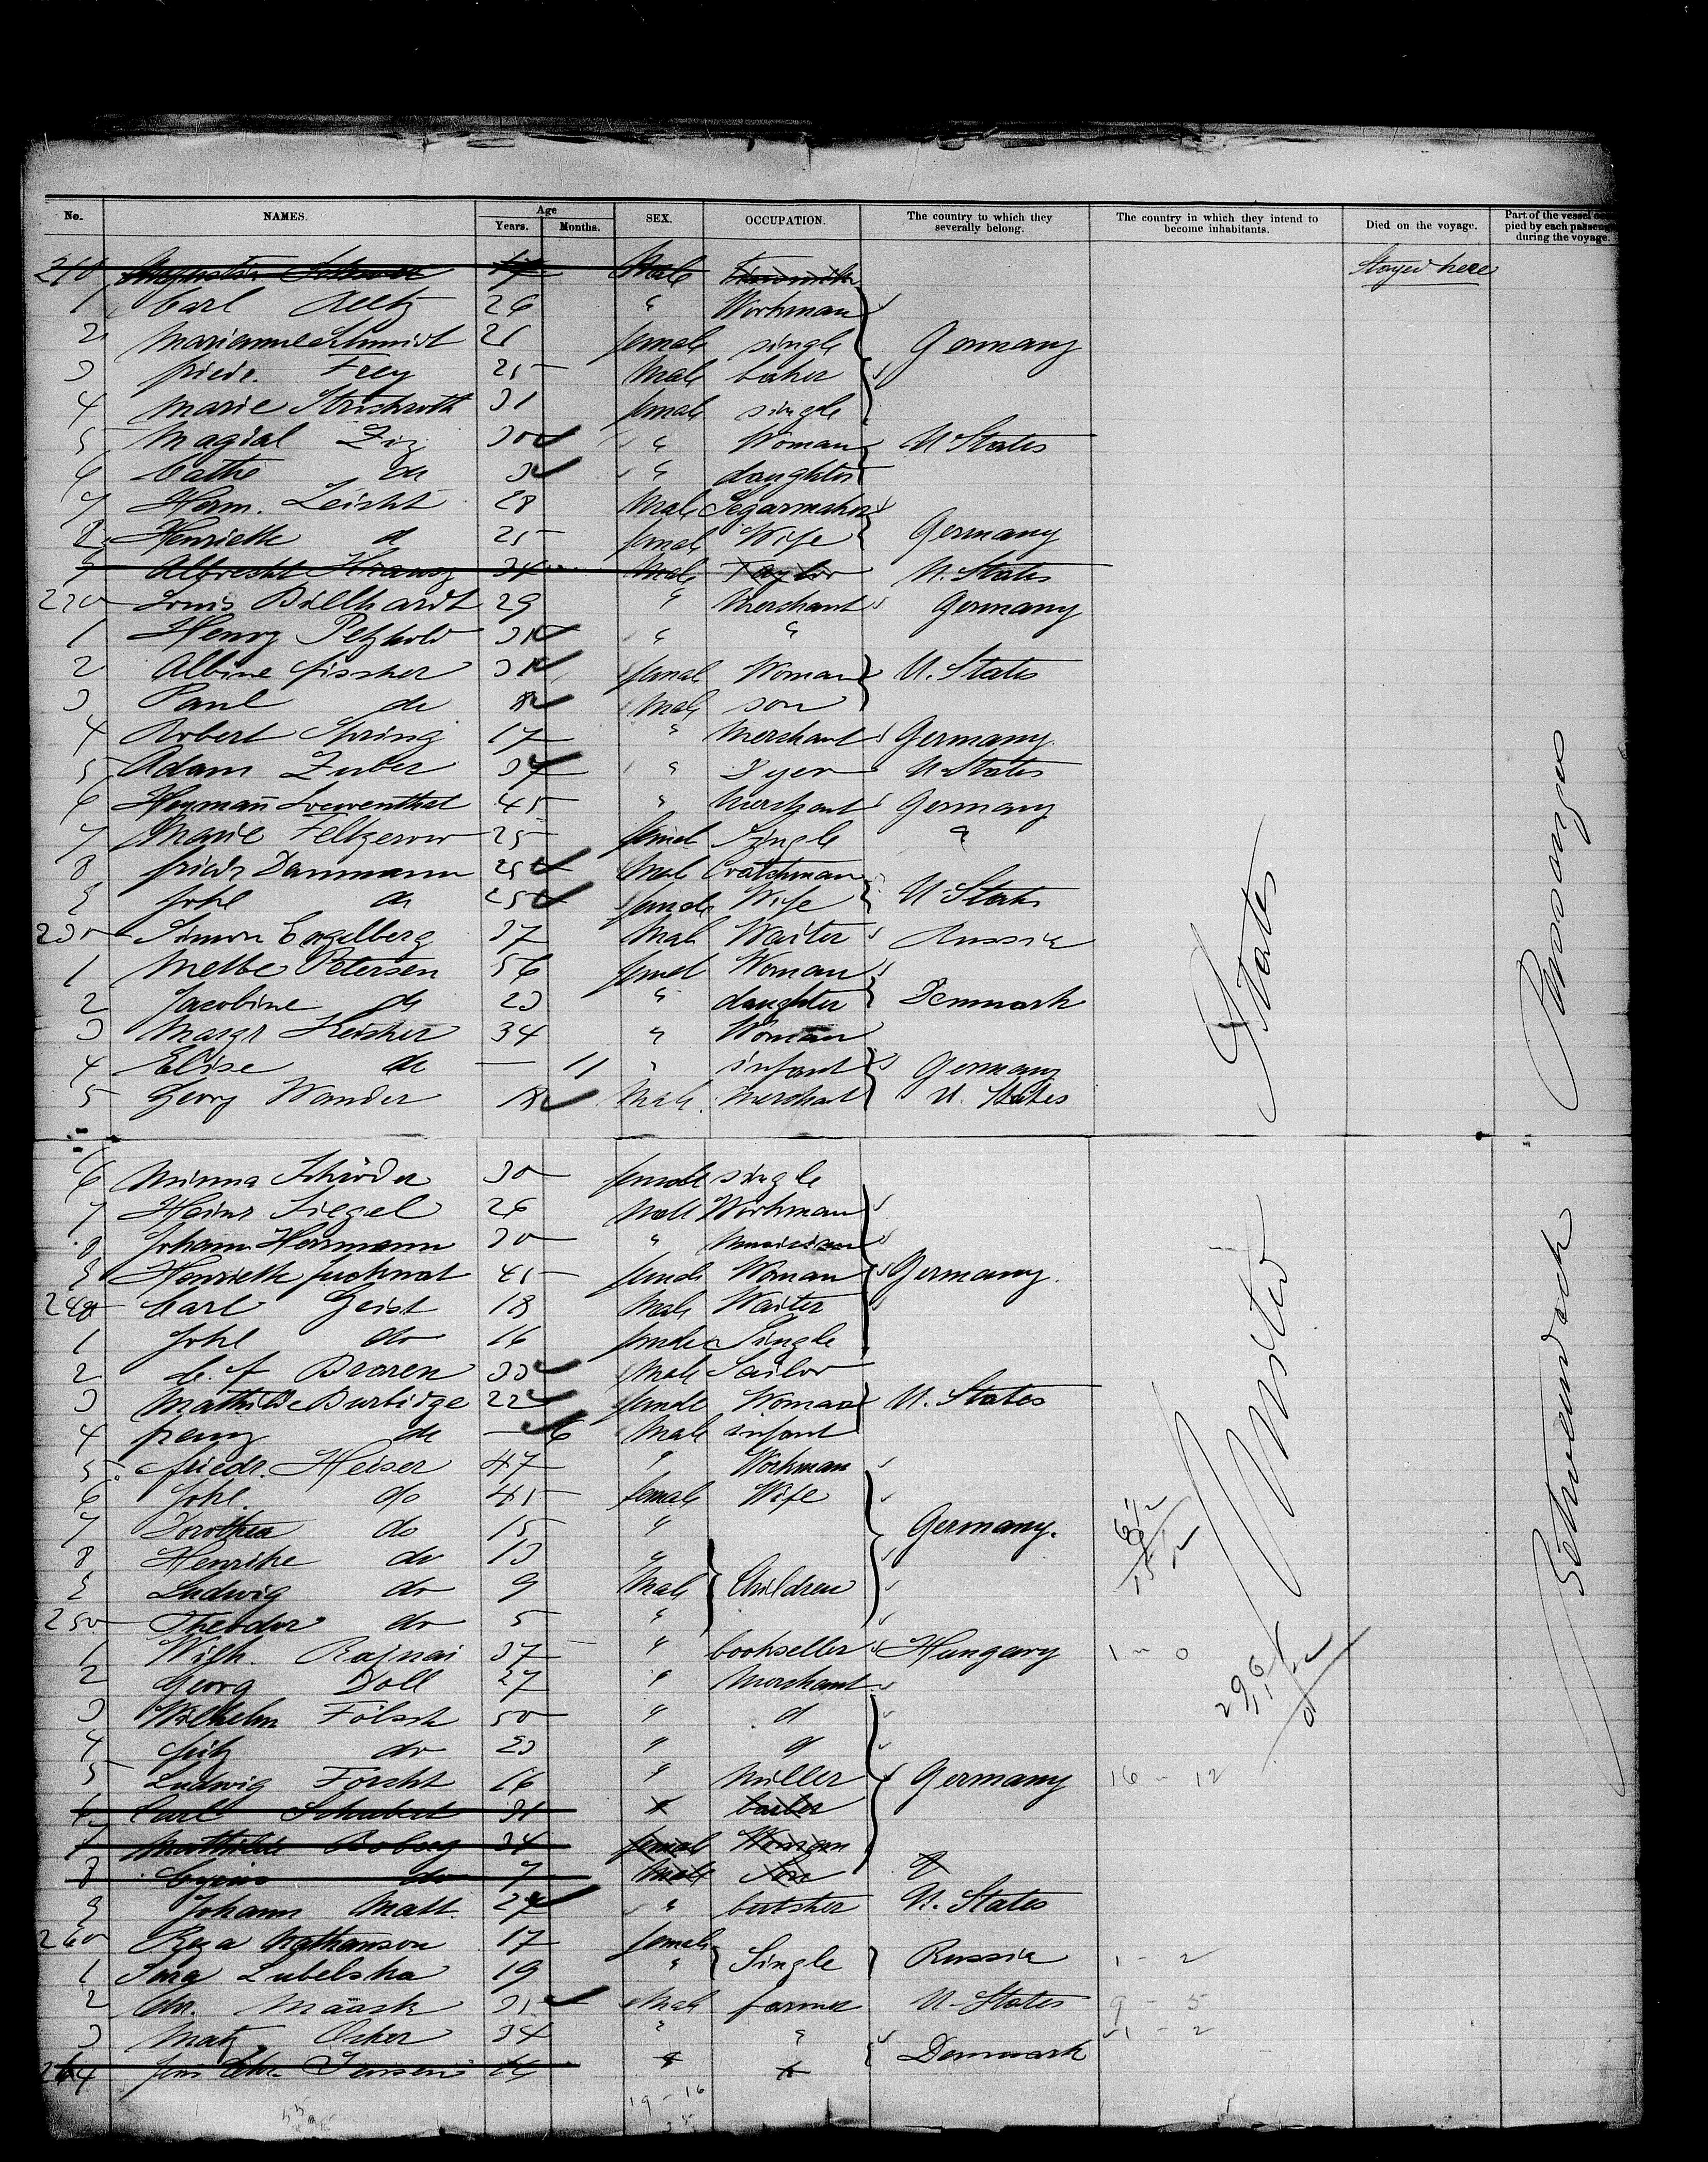 No. NAMES. Age Years. Months. SEX. OCCUPATION. The country to which they severally belong. The country in which they intend to become inhabitants. Died on the voyage. Part of the vessel occupied by each passenger during the voyage.
210 Male Stayed here
1 Carl 26 " Workman
2 Marianne Schmidt 21 female single Germany
3 friedr. Frey 25 Male baker
4 Marie 31 female single
5 Magdal Ziz 30 " Woman U States
6 Cathe do 3 " daughter
7 Herm. Leicht 28 Male Segarmaker
8 Henriette d 25 female Wife Germany
9 Albrecht 34 Male Taylor U. States
220 Louis Billhardt 29 " Merchant Germany
1 Henry Petzhold 31 " "
2 Albine fischer 31 femal Woman U. States
3 Paul do 8 Male son
4 Robert Spring 17 " Merchant Germany
5 Adam Zuber 37 " Dyer U States
6 Heymañ Loewenthal 45 " Merchant Germany
7 Marie 25 femal Single "
8 friedr Dammann 25 Mal
9 Johe do 25 female Wife U States
230 Simon Engelberg 37 Mal Waiter Russia
1 Melbe Petersen 56 femel Woman
2 Jacobine do 23 " daughter Denmark
3 Margr 34 " Woman
4 Elise do — 11 " infant Germany
5 Georg Wander 18 Male Merchant U. States
6 Minna Schröder 30 female single
7 Heinr Siegel 26 Male Workman
8 Johann Herrmann 30 " Musician
9 Henriette 45 female Woman Germany.
240 Carl Geist 18 Male Waiter
1 Johe do 16 female Single
2 C. f Braren 33 Male Sailor
3 Mathilde Burbidge 22 female Woman U. States
4 do — 6 Male infant
5 friedr. Heiser 47 " Workman
6 Johe. do 45 female Wife
7 Dorothea do 15 " Germany.
8 Henrike do 13 "
9 Ludwig do 9 Male Children
250 Theodor do 5 "
1 Wilh. Rajnai 37 " bookseller Hungary 1 - 0
2 Georg Doll 27 " Merchant
3 Wilhelm Fölsch 50 " d
4 fritz do 23 " d
5 Ludwig Forcht 16 " Miller Germany 16 - 12
6 Carl Schubert 31 "
7 Mathilde Boberg 34 female Woman
8 do 7 Male Son "
9 Johann Matt 27 " butcher U. States
260 Roza Nathanson 17 female
1 Sara Lubelska 19 " Single Russia 1 - 2
2 Chr. Määsk 31 Male farmer U. States 9 - 5
3 Matz 34 " " 1 - 2
264 Jens Chr. Jensen " " Denmark
19 - 16
United States
Betweendeck Passengers